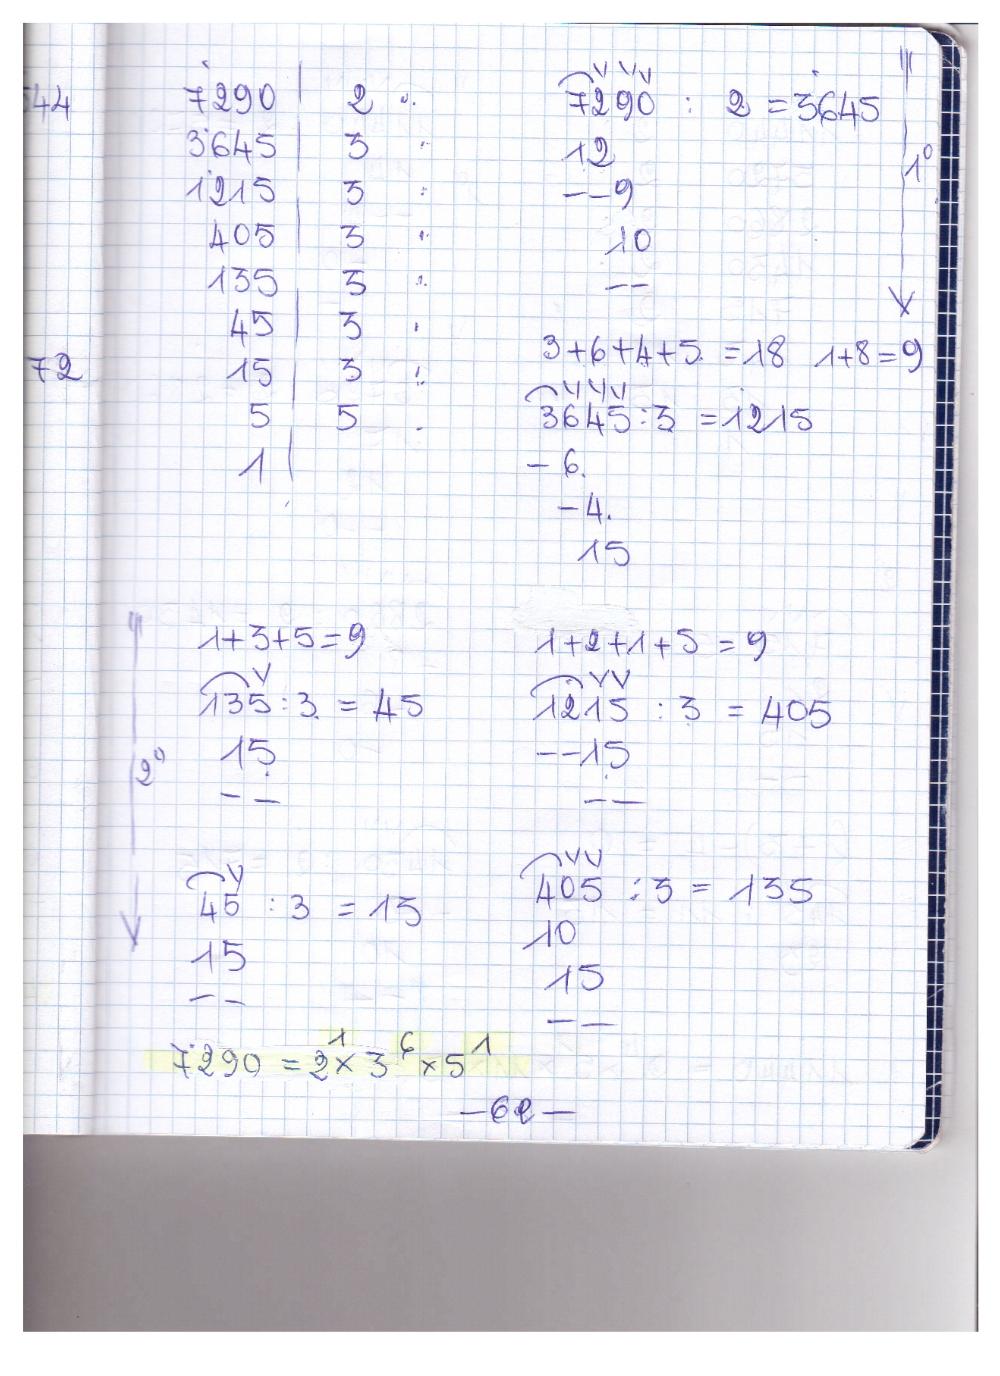 544
72
7290 | 2
3645 | 3
1215 | 3
405 | 3
135 | 3
45 | 3
15 | 3
5 | 5
1 |
7290 : 2 = 3645
12
--9
10
--
1°
3+6+4+5 = 18 1+8=9
3645:3 = 1215
-6.
-4.
15
2°
1+3+5=9
135:3 = 45
15
--
1+2+1+5 = 9
1215 : 3 = 405
--15
--
45 : 3 = 15
15
--
405 : 3 = 135
10
15
--
7290 = 2¹ × 3⁶ × 5¹
-62-